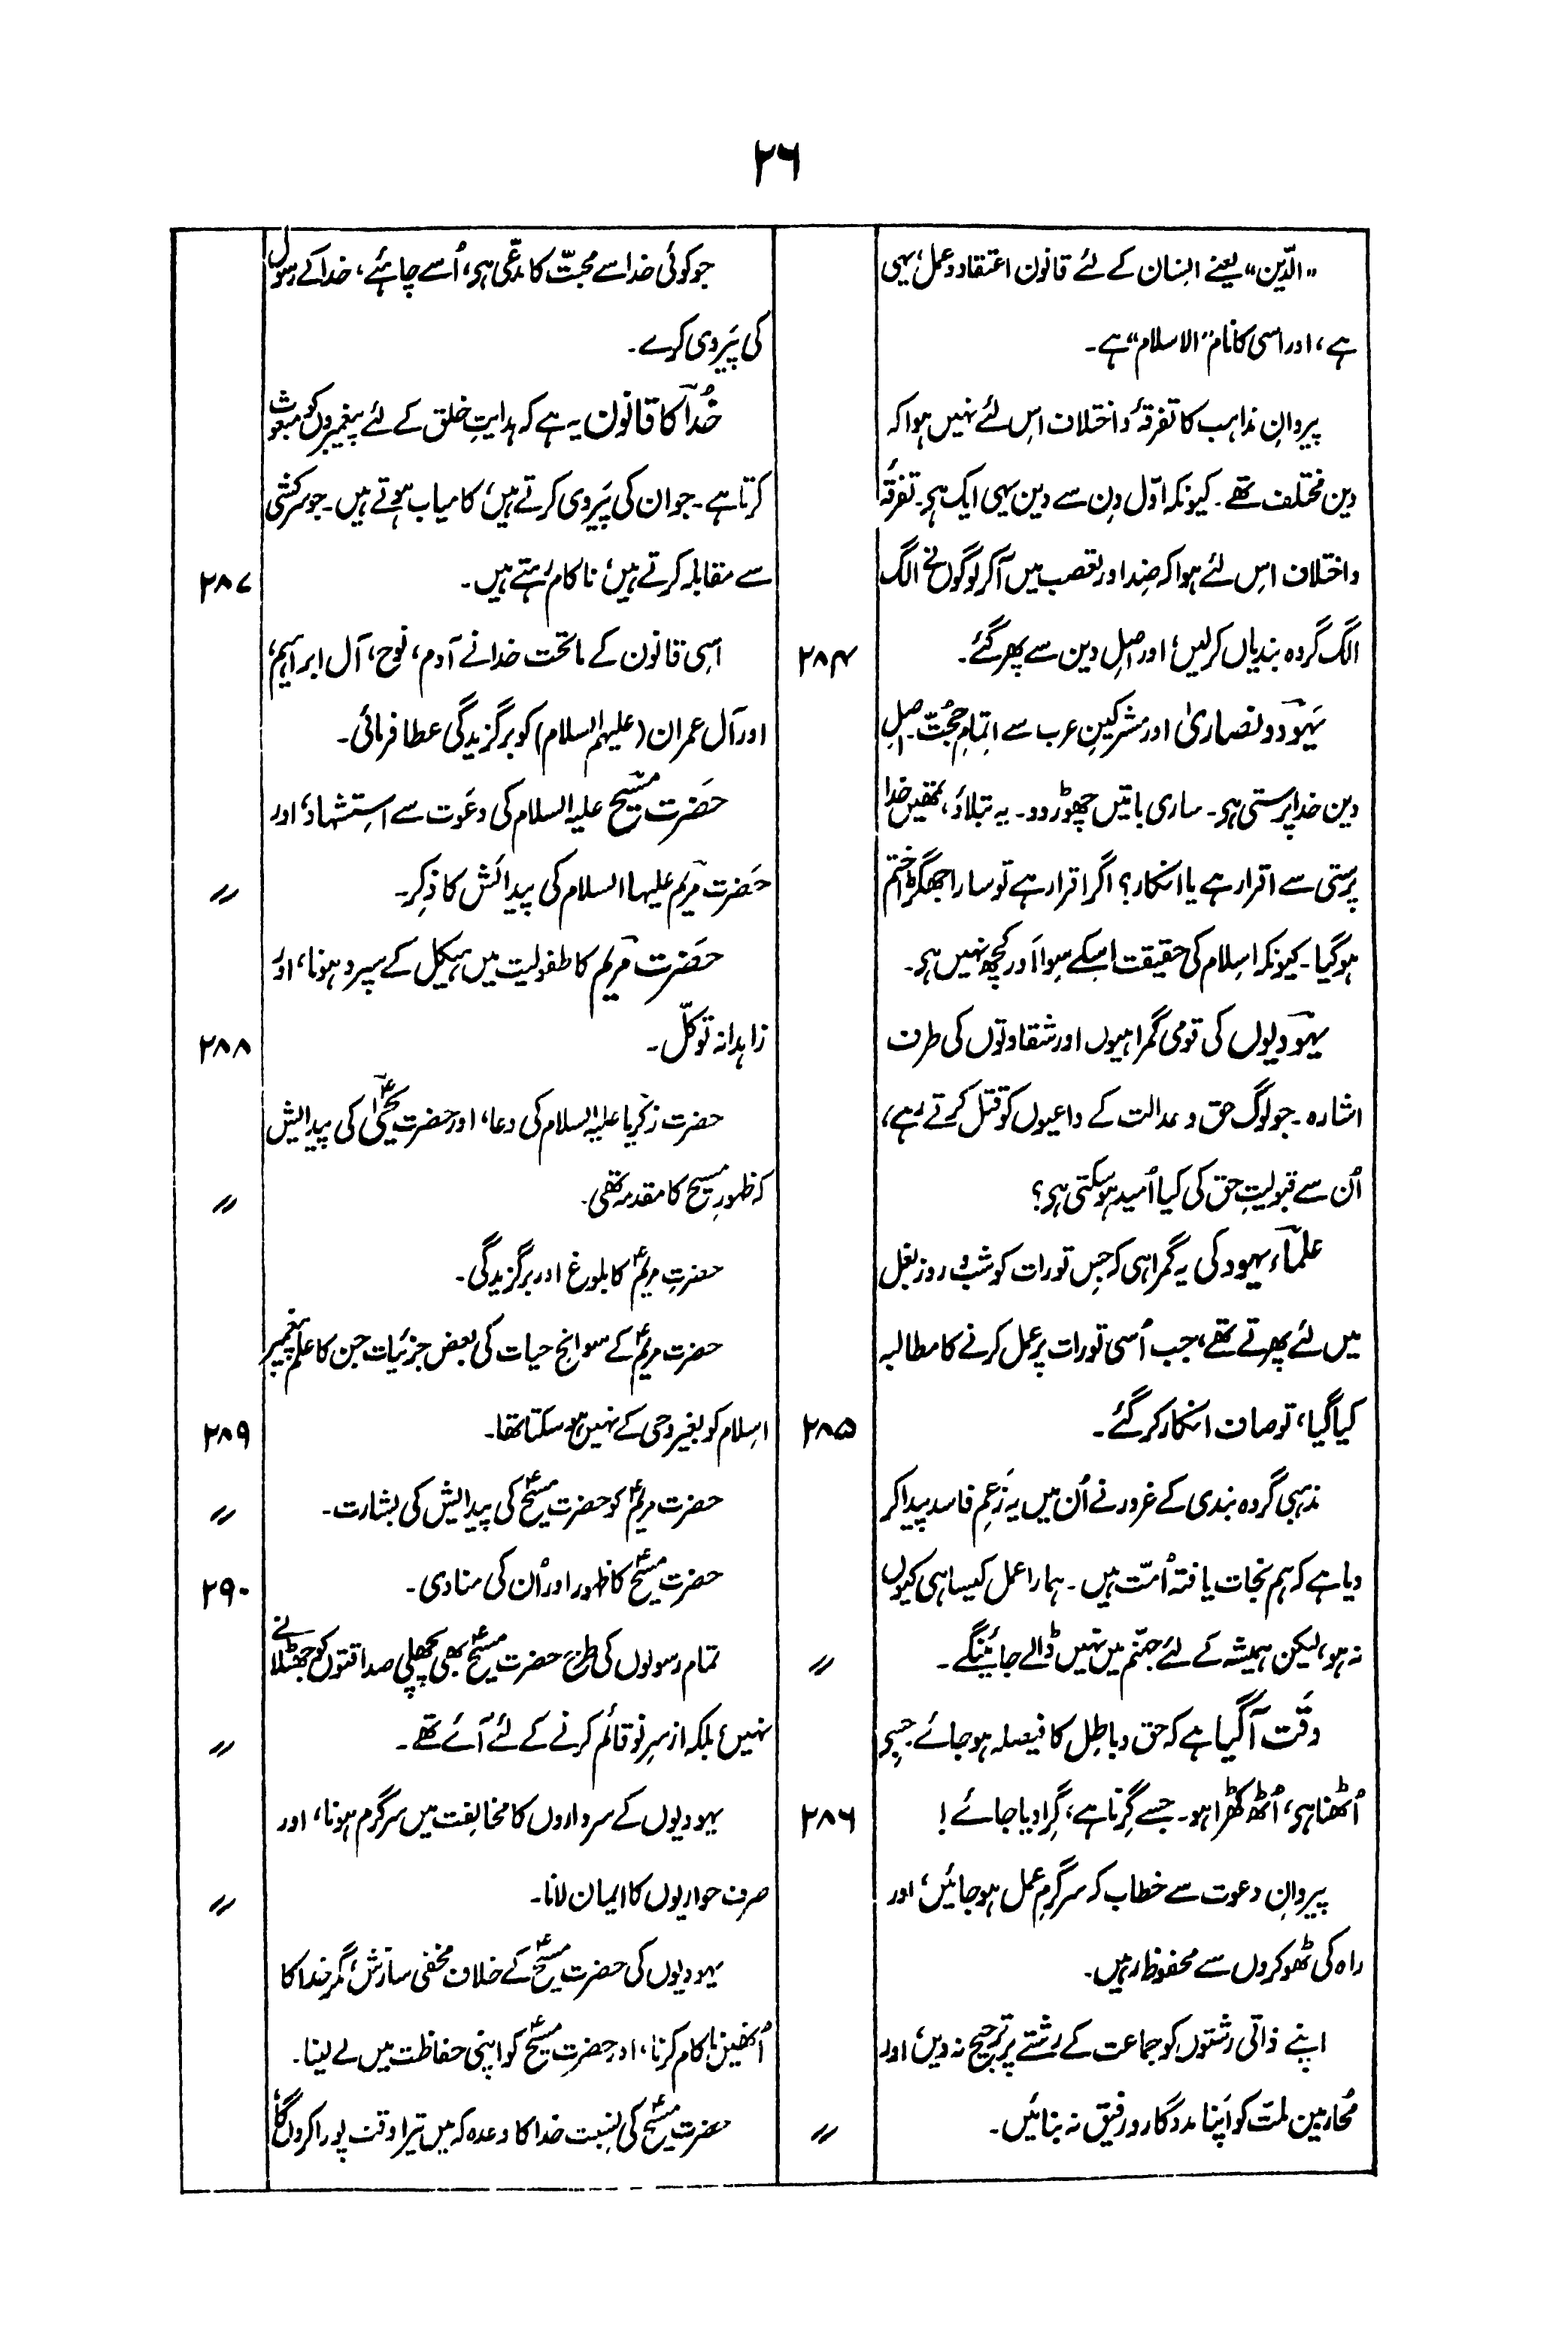 ۲۶
"الدّین" یعنے انسان کے لئے قانون اعتقاد و عمل یہی
ہے، اور اسی کا نام "الاسلام" ہے۔
پیروانِ مذاہب کا تفرقہ و اختلاف اس لئے نہیں ہوا کہ
دین مختلف تھے۔ کیونکہ اوّل دن سے دین یہی ایک ہی۔ تفرقہ
و اختلاف اِس لئے ہوا کہ ضِد اور تعصب میں آکر لوگوں نے الگ
الگ گروہ بندیاں کرلیں، اور اصلِ دین سے پھر گئے۔ ۲۸۴
یہود و نصاریٰ اور مشرکینِ عرب سے اتمامِ حجّت۔ اصلِ
دین خدا پرستی ہی۔ ساری باتیں چھوڑ دو۔ یہ بتلاؤ، تمھیں خدا
پرستی سے اقرار ہے یا انکار؟ اگر اقرار ہے تو سارا جھگڑا ختم
ہوگیا۔ کیونکہ اسلام کی حقیقت اسکے سِوا اور کچھ نہیں ہی۔
یہودیوں کی قومی گمراہیوں اور شقاوتوں کی طرف
اشارہ۔ جو لوگ حق و عدالت کے داعیوں کو قتل کرتے رہے،
اُن سے قبولیتِ حق کی کیا اُمید ہوسکتی ہی؟
علمآءِ یہود کی یہ گمراہی کہ جس تورات کو شب و روز بغل
میں لئے پھرتے تھے، جب اُسی تورات پر عمل کرنے کا مطالبہ
کیا گیا، تو صاف انکار کرگئے۔ ۲۸۵
مذہبی گروہ بندی کے غرور نے اُن میں یہ زعمِ فاسد پیدا کر
دیا ہے کہ ہم نجات یافتہ اُمّت ہیں۔ ہمارا عمل کیسا ہی کیوں
نہ ہو، لیکن ہمیشہ کے لئے جہنّم میں نہیں ڈالے جائینگے۔ 〃
وقت آگیا ہے کہ حق و باطِل کا فیصلہ ہوجائے جسے
اُٹھنا ہی، اُٹھ کھڑا ہو۔ جسے گِرنا ہے، گِرا دیا جائے! ۲۸۶
پیروانِ دعوت سے خطاب کہ سرگرمِ عمل ہوجائیں، اور
راہ کی ٹھوکروں سے محفوظ رہیں۔
اپنے ذاتی رشتوں کو جماعت کے رشتے پر ترجیح نہ دیں، اور
مُحاربینِ ملت کو اپنا مددگار و رفیق نہ بنائیں۔ 〃
جو کوئی خدا سے محبّت کا مدّعی ہی، اُسے چاہئے، خدا کے رسول
کی پیَروی کرے۔
خُدا کا قانون یہ ہے کہ ہدایتِ خلق کے لئے پیغمبروں کو مبعوث
کرتا ہے۔ جو ان کی پیَروی کرتے ہیں، کامیاب ہوتے ہیں۔ جو سرکشی
سے مقابلہ کرتے ہیں، ناکام رہتے ہیں۔ ۲۸۷
اسِی قانون کے ماتحت خدا نے آدم، نوح، آل ابراہیم،
اور آل عمران (علیہم السلام) کو برگزیدگی عطا فرمائی۔
حضرت مسیح علیہ السلام کی دعوت سے استِشہاد، اور
حضرت مریم علیہا السلام کی پیدائش کا ذکر۔ 〃
حضرت مریم کا طفولیت میں ہیکل کے سپرد ہونا، اور
زاہدانہ توکّل۔ ۲۸۸
حضرت زکریا علیہ السلام کی دعا، اور حضرت یحییٰؑ کی پیدایش
کہ ظہورِ مسیح کا مقدمہ تھی۔ 〃
حضرتِ مریمؑ کا بلوغ اور برگزیدگی۔
حضرت مریمؑ کے سوانح حیات کی بعض جزئیات جن کا علم پیغمبر
اسلام کو بغیر وحی کے نہیں ہوسکتا تھا۔ ۲۸۹
حضرت مریمؑ کو حضرت مسیحؑ کی پیدایش کی بشارت۔ 〃
حضرت مسیحؑ کا ظہور اور اُن کی منادی۔ ۲۹۰
تمام رسولوں کی طرح حضرت مسیحؑ بھی پچھلی صداقتوں کو جھٹلانے
نہیں، بلکہ از سرِ نو قائم کرنے کے لئے آئے تھے۔ 〃
یہودیوں کے سرداروں کا مخالفت میں سرگرم ہونا، اور
صرف حواریوں کا ایمان لانا۔ 〃
یہودیوں کی حضرت مسیحؑ کے خلاف مخفی سازش، مگر خدا کا
اُنھیں ناکام کرنا، اور حضرتِ مسیحؑ کو اپنی حفاظت میں لے لینا۔
حضرت مسیحؑ کی نسبت خدا کا وعدہ کہ میں تیرا وقت پورا کروں گا،